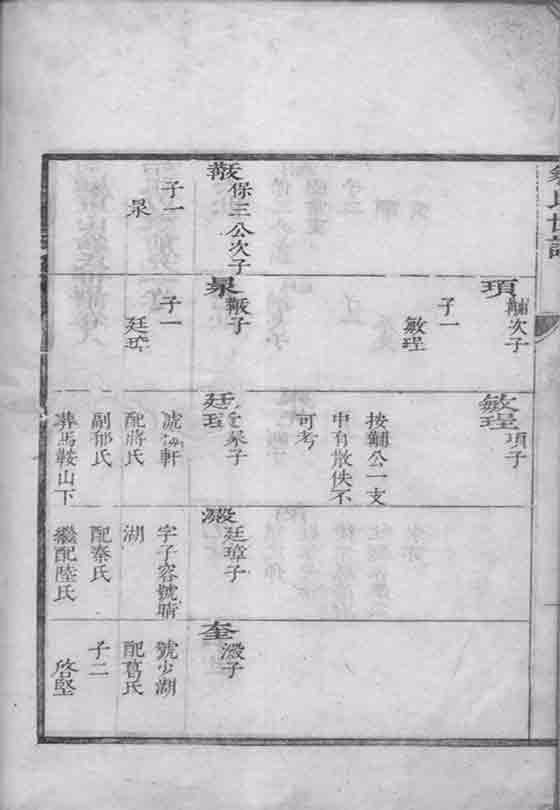 氏世譜
項
黼次子
子一
敏珵
敏珵
項子
按黼公一支
中有散佚不
可考
黻
保三公次子
子一
杲
杲
黻子
子一
廷璋
廷璋
杲子
軒
配蔣氏
副郁氏
葬馬鞍山下
澱
廷璋子
字子容號晴
湖
配秦氏
繼配陸氏
奎
澱子
號少湖
配葛氏
子二
啓堅